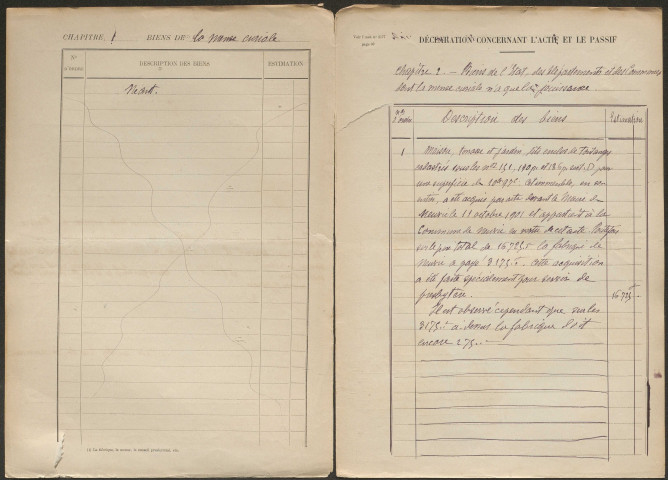 CHAPITRE I BIENS DE la mense curiale
N° d'ordre
DESCRIPTION DES BIENS
ESTIMATION
Néant.
DÉCLARATION CONCERNANT L'ACTIF ET LE PASSIF
Chapitre 2. – Biens de l'Etat, des Départements et des Communes
dont la mense curiale n'a que la jouissance
Nos d'ordre
Description des biens
Estimation
1 Maison, et jardin, sis
cadastrés sous les nos 151, 140p. et 136p. sect. D pour
une superficie de
a été acquis par acte devant le Maire de
le 11 octobre 1901 et appartient à la
Commune de en vertu de cet acte. Toutefois
sur le prix total de 16725f la fabrique de
a payé 3175f. Cette acquisition
a été faite spécialement pour servir de
presbytère. 16725
Il est observé cependant que sur les
3175f ci-dessus la fabrique doit
encore 275f.